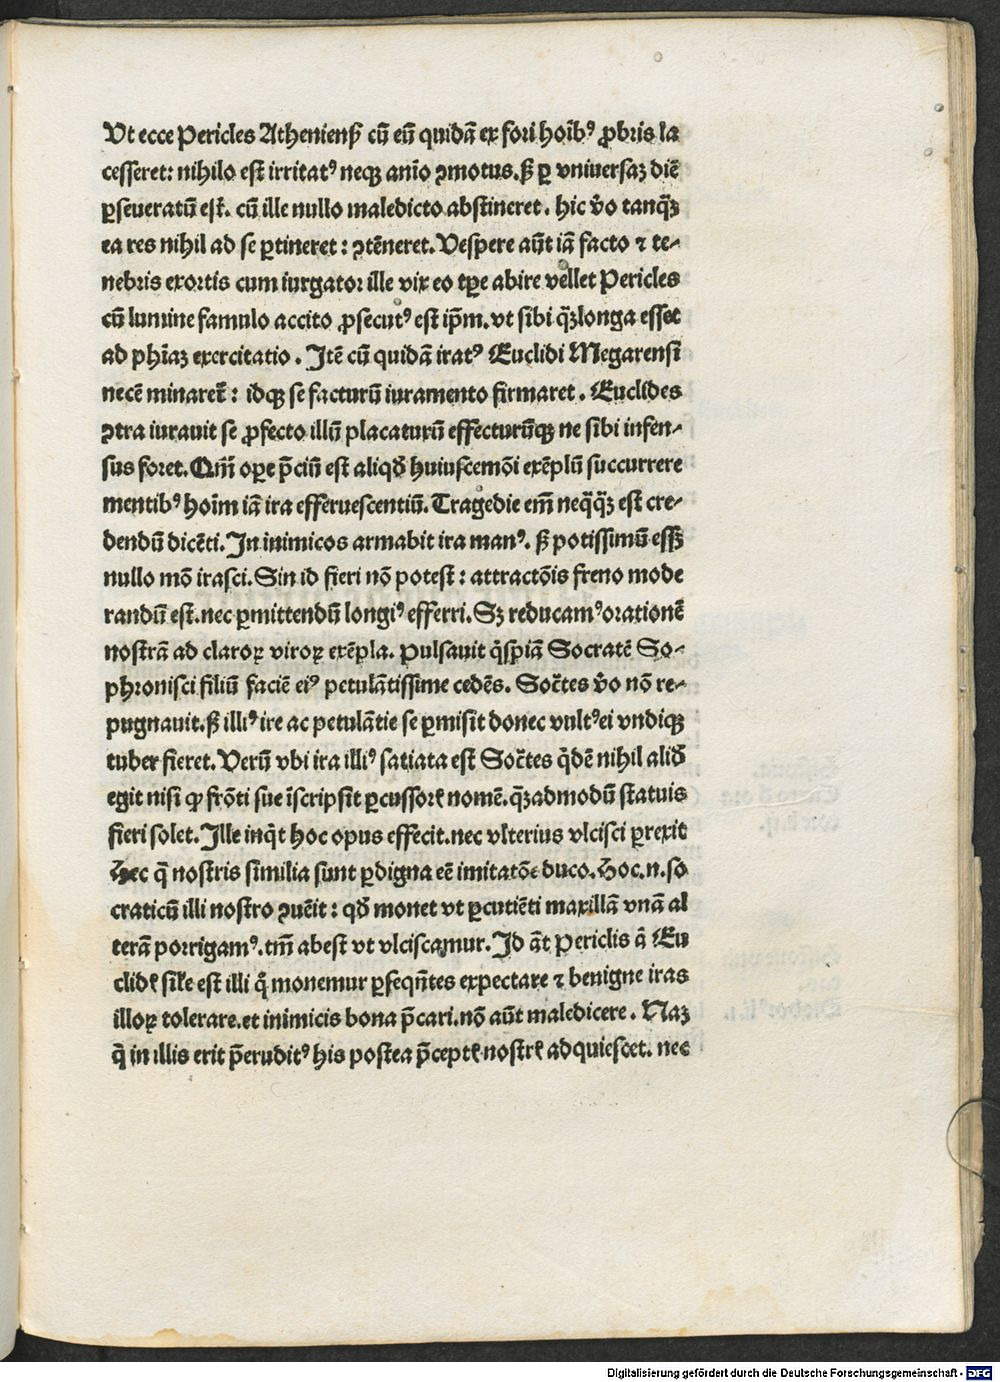 Vt ecce Pericles Athenienſꝭ cū eū quidā ex fori hoīb⁹ ꝓbris la
ceſſeret: nihilo eſt irritat⁹ neqꝫ anīo ꝯmotus. ſꝫ ꝑ vniuerſaꝫ diē
ꝑſeueratū eſt. cū ille nullo maledicto abſtineret. hic v̄o tanq̄ꝫ
ea res nihil ad ſe ꝑtineret: ꝯtēneret. Veſpere aūt iā facto ⁊ te-
nebris exortis cum iurgator ille vix eo tꝑe abire vellet Pericles
cū lumine famulo accito ꝓſecut⁹ eſt ip̄m. vt ſibi q̄ꝫ longa eſſet
ad phīaꝫ exercitatio. Itē cū quidā irat⁹ Euclidi Megarenſi
necē minaret᷑: idqꝫ ſe facturū iuramento firmaret. Euclides
ꝯtra iurauit ſe ꝓfecto illū placaturū effecturūqꝫ ne ſibi infen-
ſus foret. Qm̄ oꝑe p̄ciū eſt aliqd̄ huiuſcemōi exēplū ſuccurrere
mentib⁹ hoīm iā ira efferueſcentiū. Tragedie em̄ neq̄q̄ꝫ eſt cre-
dendū dicēti. In inimicos armabit ira man⁹. ſꝫ potiſſimū eſſꝫ
nullo mō iraſci. Sin id fieri nō poteſt: attractōis freno mode
randū eſt. nec ꝑmittendū longi⁹ efferri. Sꝫ reducam⁹ orationē
noſtrā ad claroꝝ viroꝝ exēpla. Pulſauit q̄ſpiā Socratē So-
phroniſci filiū faciē ei⁹ petulātiſſime cedēs. Soc̄tes v̄o nō re-
pugnauit. ſꝫ illi⁹ ire ac petulātie ſe ꝑmiſit donec vult⁹ ei vndiqꝫ
tuber fieret. Verū vbi ira illi⁹ ſatiata eſt Soc̄tes q̄dē nihil alid̄
egit niſi ꝙ frōti ſue īſcripſit ꝑcuſſorꝭ nomē. q̄ꝫadmodū ſtatuis
fieri ſolet. Ille inq̄t hoc opus effecit. nec vlterius vlciſci ꝑrexit
Hec q̄ noſtris ſimilia ſunt ꝑdigna eē imitatōe duco. Hoc. n. ſo
craticū illi noſtro ꝯuēit: qd̄ monet vt ꝑcutiēti maxillā vnā al
terā porrigam⁹. tm̄ abeſt vt vlciſcamur. Id āt Periclis ā Eu
clidꝭ ſil̄e eſt illi q̄ monemur ꝑſeqn̄tes expectare ⁊ benigne iras
illoꝝ tolerare. et inimicis bona p̄cari. nō aūt maledicere. Naꝫ
q̄ in illis erit p̄erudit⁹ his poſtea p̄ceptꝭ noſtrꝭ adquieſcet. nec
Digitalisierung gefördert durch die Deutsche Forschungsgemeinschaft - DFG